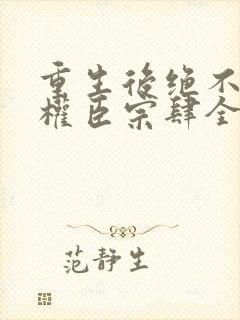 重生後绝不
權臣宗肆全
范静生